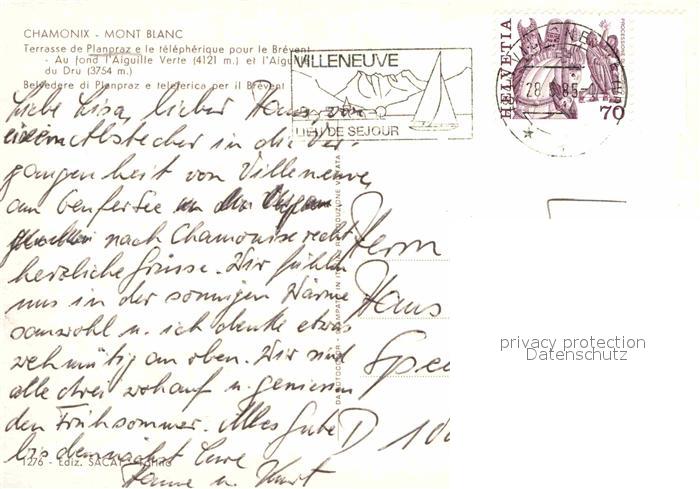 CHAMONIX - MONT BLANC
Terrasse de Planpraz e le téléphérique pour le Brévent
- Au fond l'Aiguille Verte (4121 m.) et l'Aiguille
du Dru (3754 m.)
Belvedere di Planpraz e teleferica per il Brévent
VILLENEUVE
LIEU DE SEJOUR
HELVETIA
70
28.
85
Liebe Lisa, lieber Hans, von
einem Abstecher in die Ver-
gangenheit von Villeneuve
am Genfersee
nach Chamonix recht
herzliche Grüsse. Wir fühlen
uns in der sonnigen Wärme
sauwohl u. ich denke etwas
wehmütig an oben. Wir sind
alle drei wohauf u. geniessen
den Frühsommer. Alles Gute
bis demnächst Eure
Hanne u. Kurt
Herrn
Hans
Spe
D 10
privacy protection
Datenschutz
1276 - Ediz. SACAT - Torino